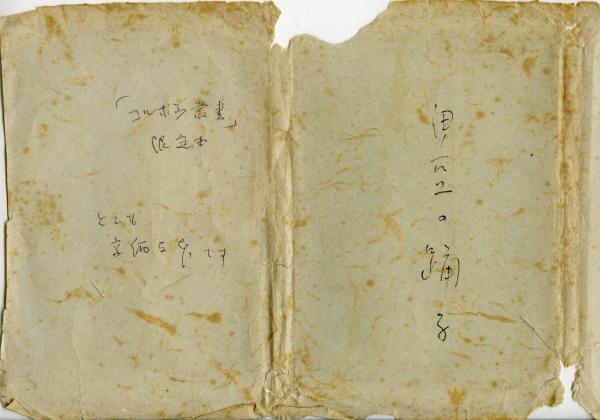 「コルボオ叢書」
限定本
とても
高価な本です
伊豆の踊子